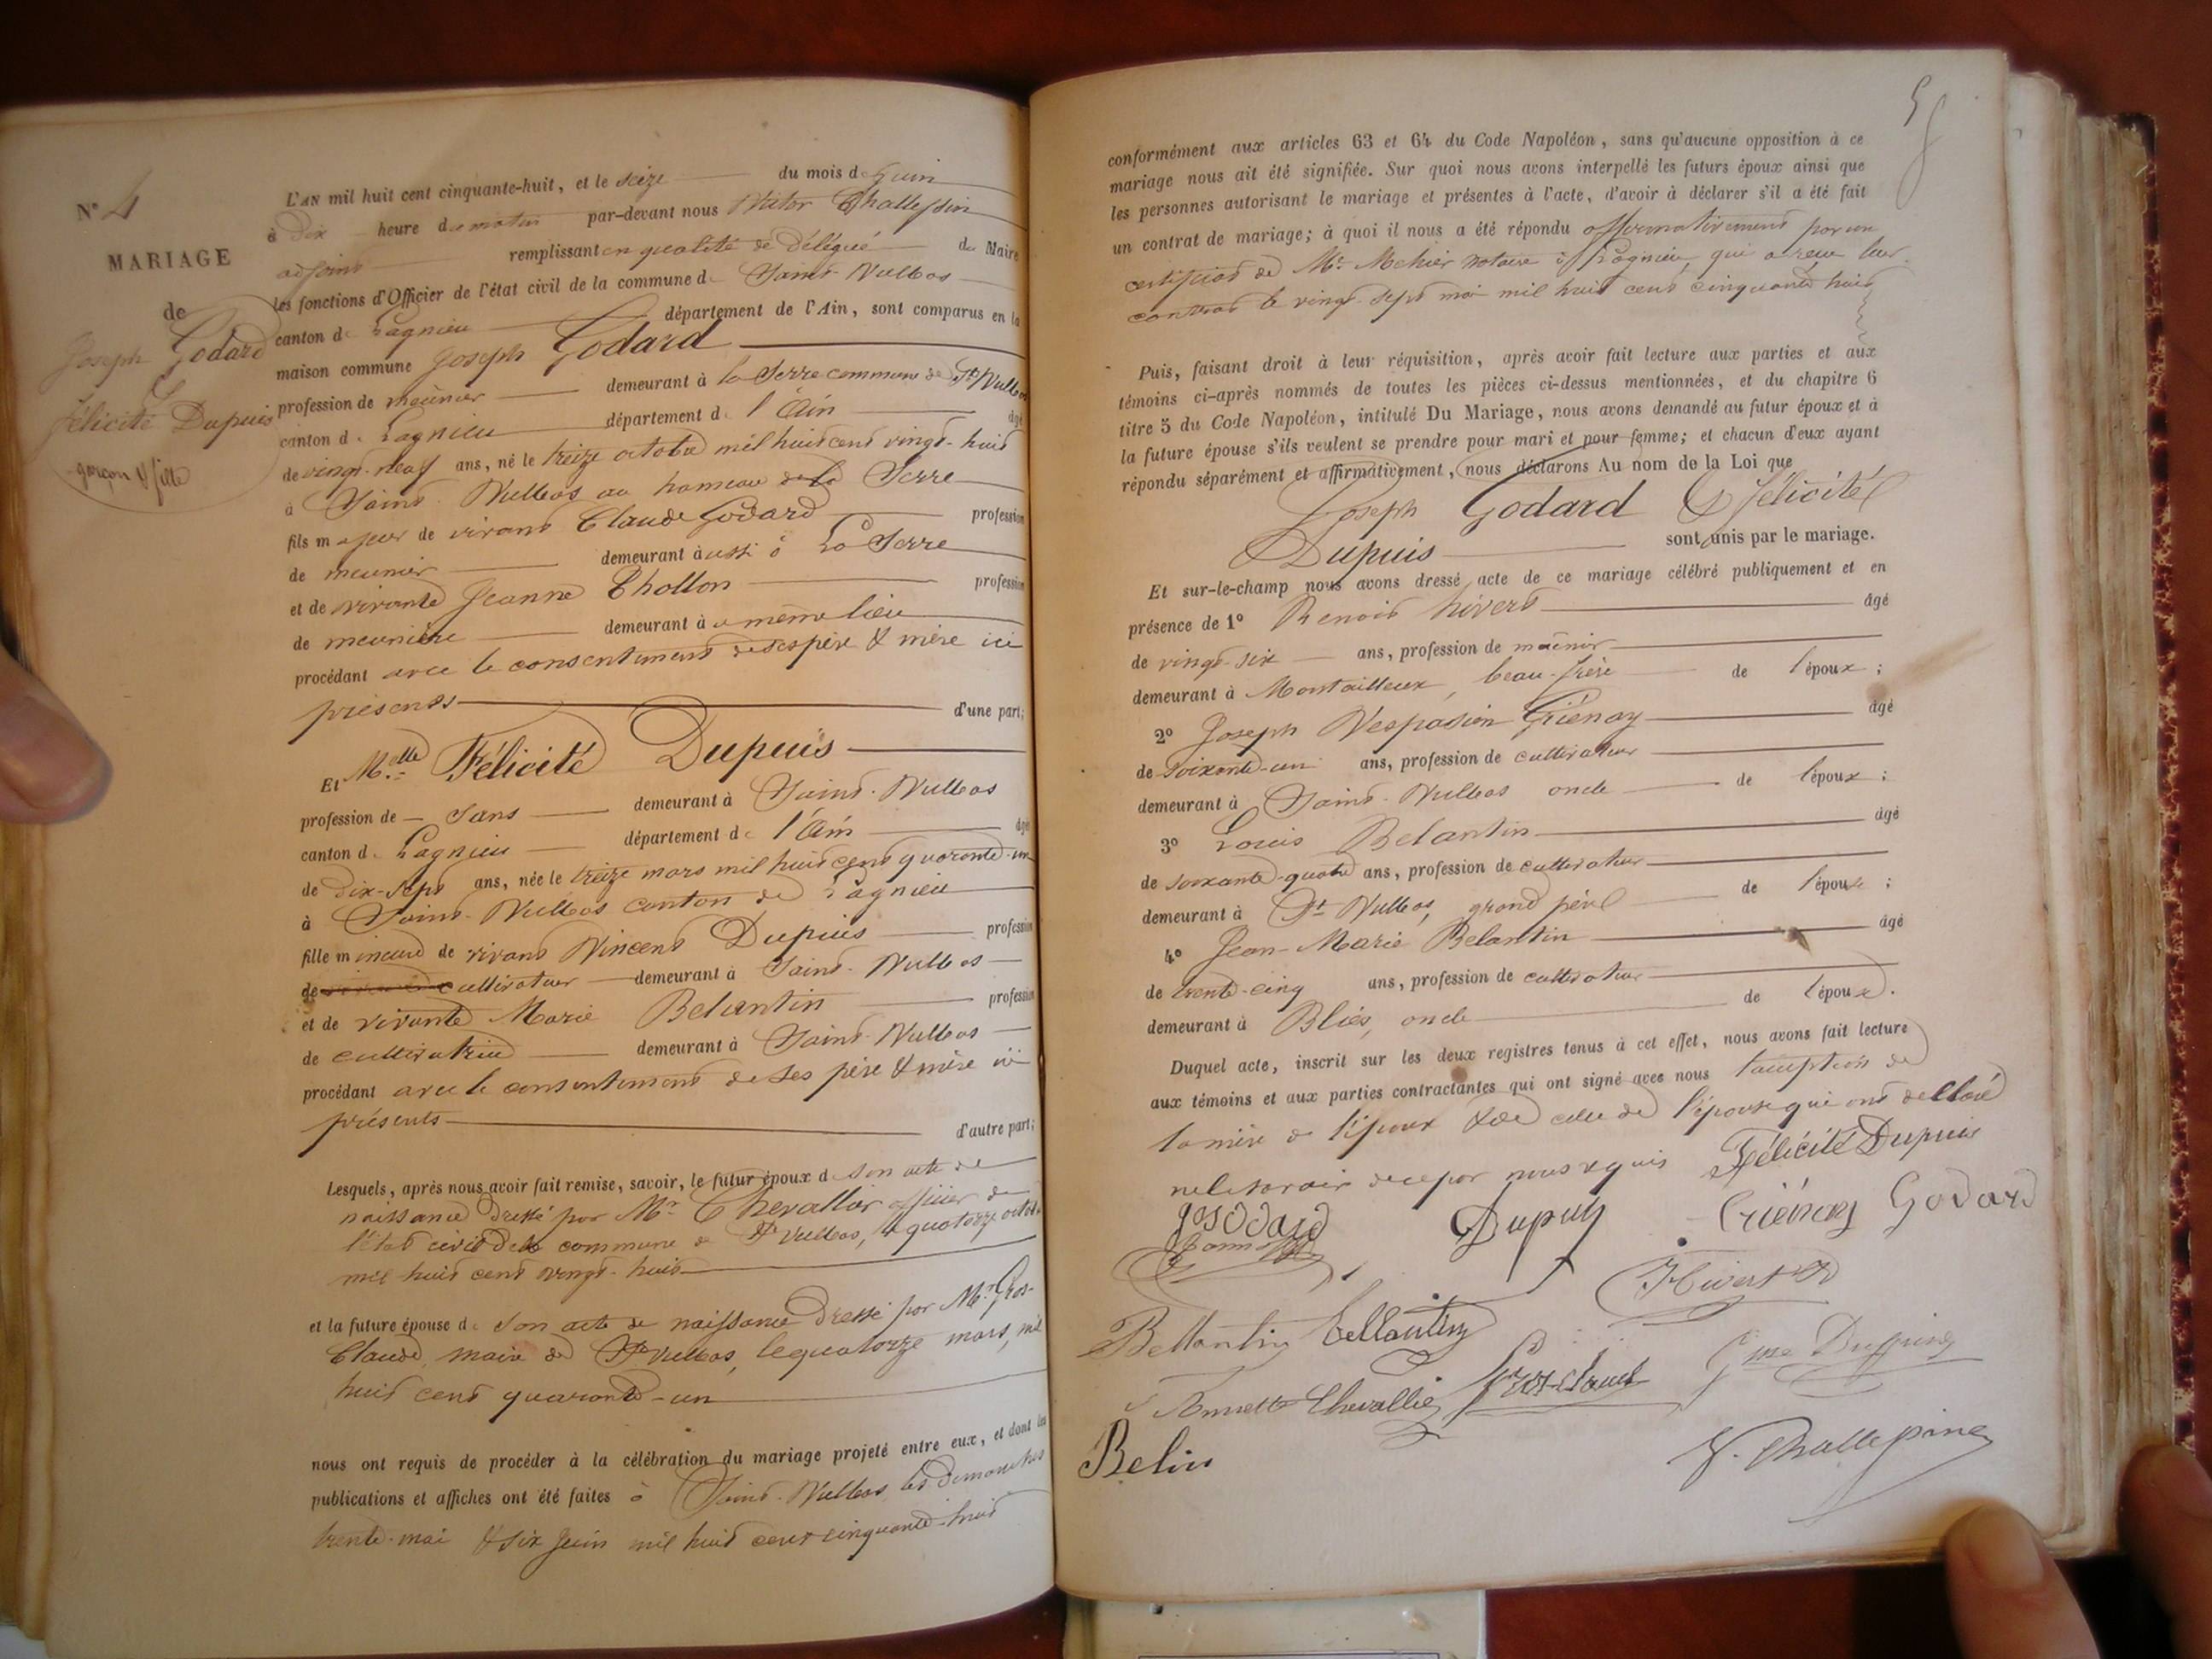 N° 4
MARIAGE
de
Joseph Godard
&
félicité Dupuis
garçon & fille
L'AN mil huit cent cinquante-huit, et le seize du mois de Juin
à Dix heure du matin par-devant nous Victor Challepin
adjoint remplissant en qualité de délégué du Maire
les fonctions d'Officier de l'état civil de la commune de Saint-Vulbas
canton de Lagnieu département de l'Ain, sont comparus en la
maison commune Joseph Godard
profession de meunier demeurant à la Serre commune de St Vulbas
canton de Lagnieu département de l'Ain âgé
de vingt-neuf ans, né le treize octobre mil huit cent vingt-huit
à Saint-Vulbas au hameau de la Serre
fils majeur de vivant Claude Godard profession
de meunier demeurant aussi à La Serre
et de vivante Jeanne Chollon profession
de meunière demeurant au même lieu
procédant avec le consentement de ses père & mère ici
présents d'une part;
Et Melle Félicité Dupuis
profession de - Sans demeurant à Saint-Vulbas
canton de Lagnieu département de l'Ain âgé
de Dix-sept ans, née le treize mars mil huit cent quarante-un
à Saint-Vulbas canton de Lagnieu
fille mineure de vivant Vincent Dupuis profession
de cultivateur demeurant à Saint-Vulbas
et de vivante Marie Belantin profession
de cultivatrice demeurant à Saint-Vulbas
procédant avec le consentement de ses père & mère ici
présents d'autre part;
Lesquels, après nous avoir fait remise, savoir, le futur époux de son acte de
naissance dressé par Mr Chevallier officier de
l'état civil de la commune de St Vulbas, le quatorze octobre
mil huit cent vingt-huit
et la future épouse de son acte de naissance dressé par Mr Gros-
Claude, maire de St Vulbas, le quatorze mars, mil
huit cent quarante-un
nous ont requis de procéder à la célébration du mariage projeté entre eux, et dont les
publications et affiches ont été faites à Saint-Vulbas les dimanches
trente-mai & six Juin mil huit cent cinquante-huit
conformément aux articles 63 et 64 du Code Napoléon, sans qu'aucune opposition à ce
mariage nous ait été signifiée. Sur quoi nous avons interpellé les futurs époux ainsi que
les personnes autorisant le mariage et présentes à l'acte, d'avoir à déclarer s'il a été fait
un contrat de mariage; à quoi il nous a été répondu affirmativement par un
certificat de Me Mehier notaire à Lagnieu, qui a reçu leur
contrat le vingt-sept mai mil huit cent cinquante huit
Puis, faisant droit à leur réquisition, après avoir fait lecture aux parties et aux
témoins ci-après nommés de toutes les pièces ci-dessus mentionnées, et du chapitre 6
titre 5 du Code Napoléon, intitulé Du Mariage, nous avons demandé au futur époux et à
la future épouse s'ils veulent se prendre pour mari et pour femme; et chacun d'eux ayant
répondu séparément et affirmativement, nous déclarons Au nom de la Loi que
Joseph Godard & félicité
Dupuis sont unis par le mariage.
Et sur-le-champ nous avons dressé acte de ce mariage célébré publiquement et en
présence de 1° Benoit hivert âgé
de vingt-six ans, profession de
demeurant à Montailleux, beau-frère de l'époux;
2° Joseph Vespasien Griénay âgé
de soixante-un ans, profession de cultivateur
demeurant à Saint-Vulbas oncle de l'époux;
3° Louis Belantin âgé
de soixante-quatre ans, profession de cultivateur
demeurant à St Vulbas, grand père de l'épouse;
4° Jean-Marie Belantin âgé
de trente-cinq ans, profession de cultivateur
demeurant à Bliés, oncle de l'épouse.
Duquel acte, inscrit sur les deux registres tenus à cet effet, nous avons fait lecture
aux témoins et aux parties contractantes qui ont signé avec nous l'exception de
la mère de l'époux & de celle de l'épouse qui ont déclaré
ne le savoir de ce par nous requis Félicité Dupuis
Jos Godard Dupuy Griénay Godard
Hivert
Bellantin Bellantin
Annette Chevallier Gros-Claude
Belin V. Challepin